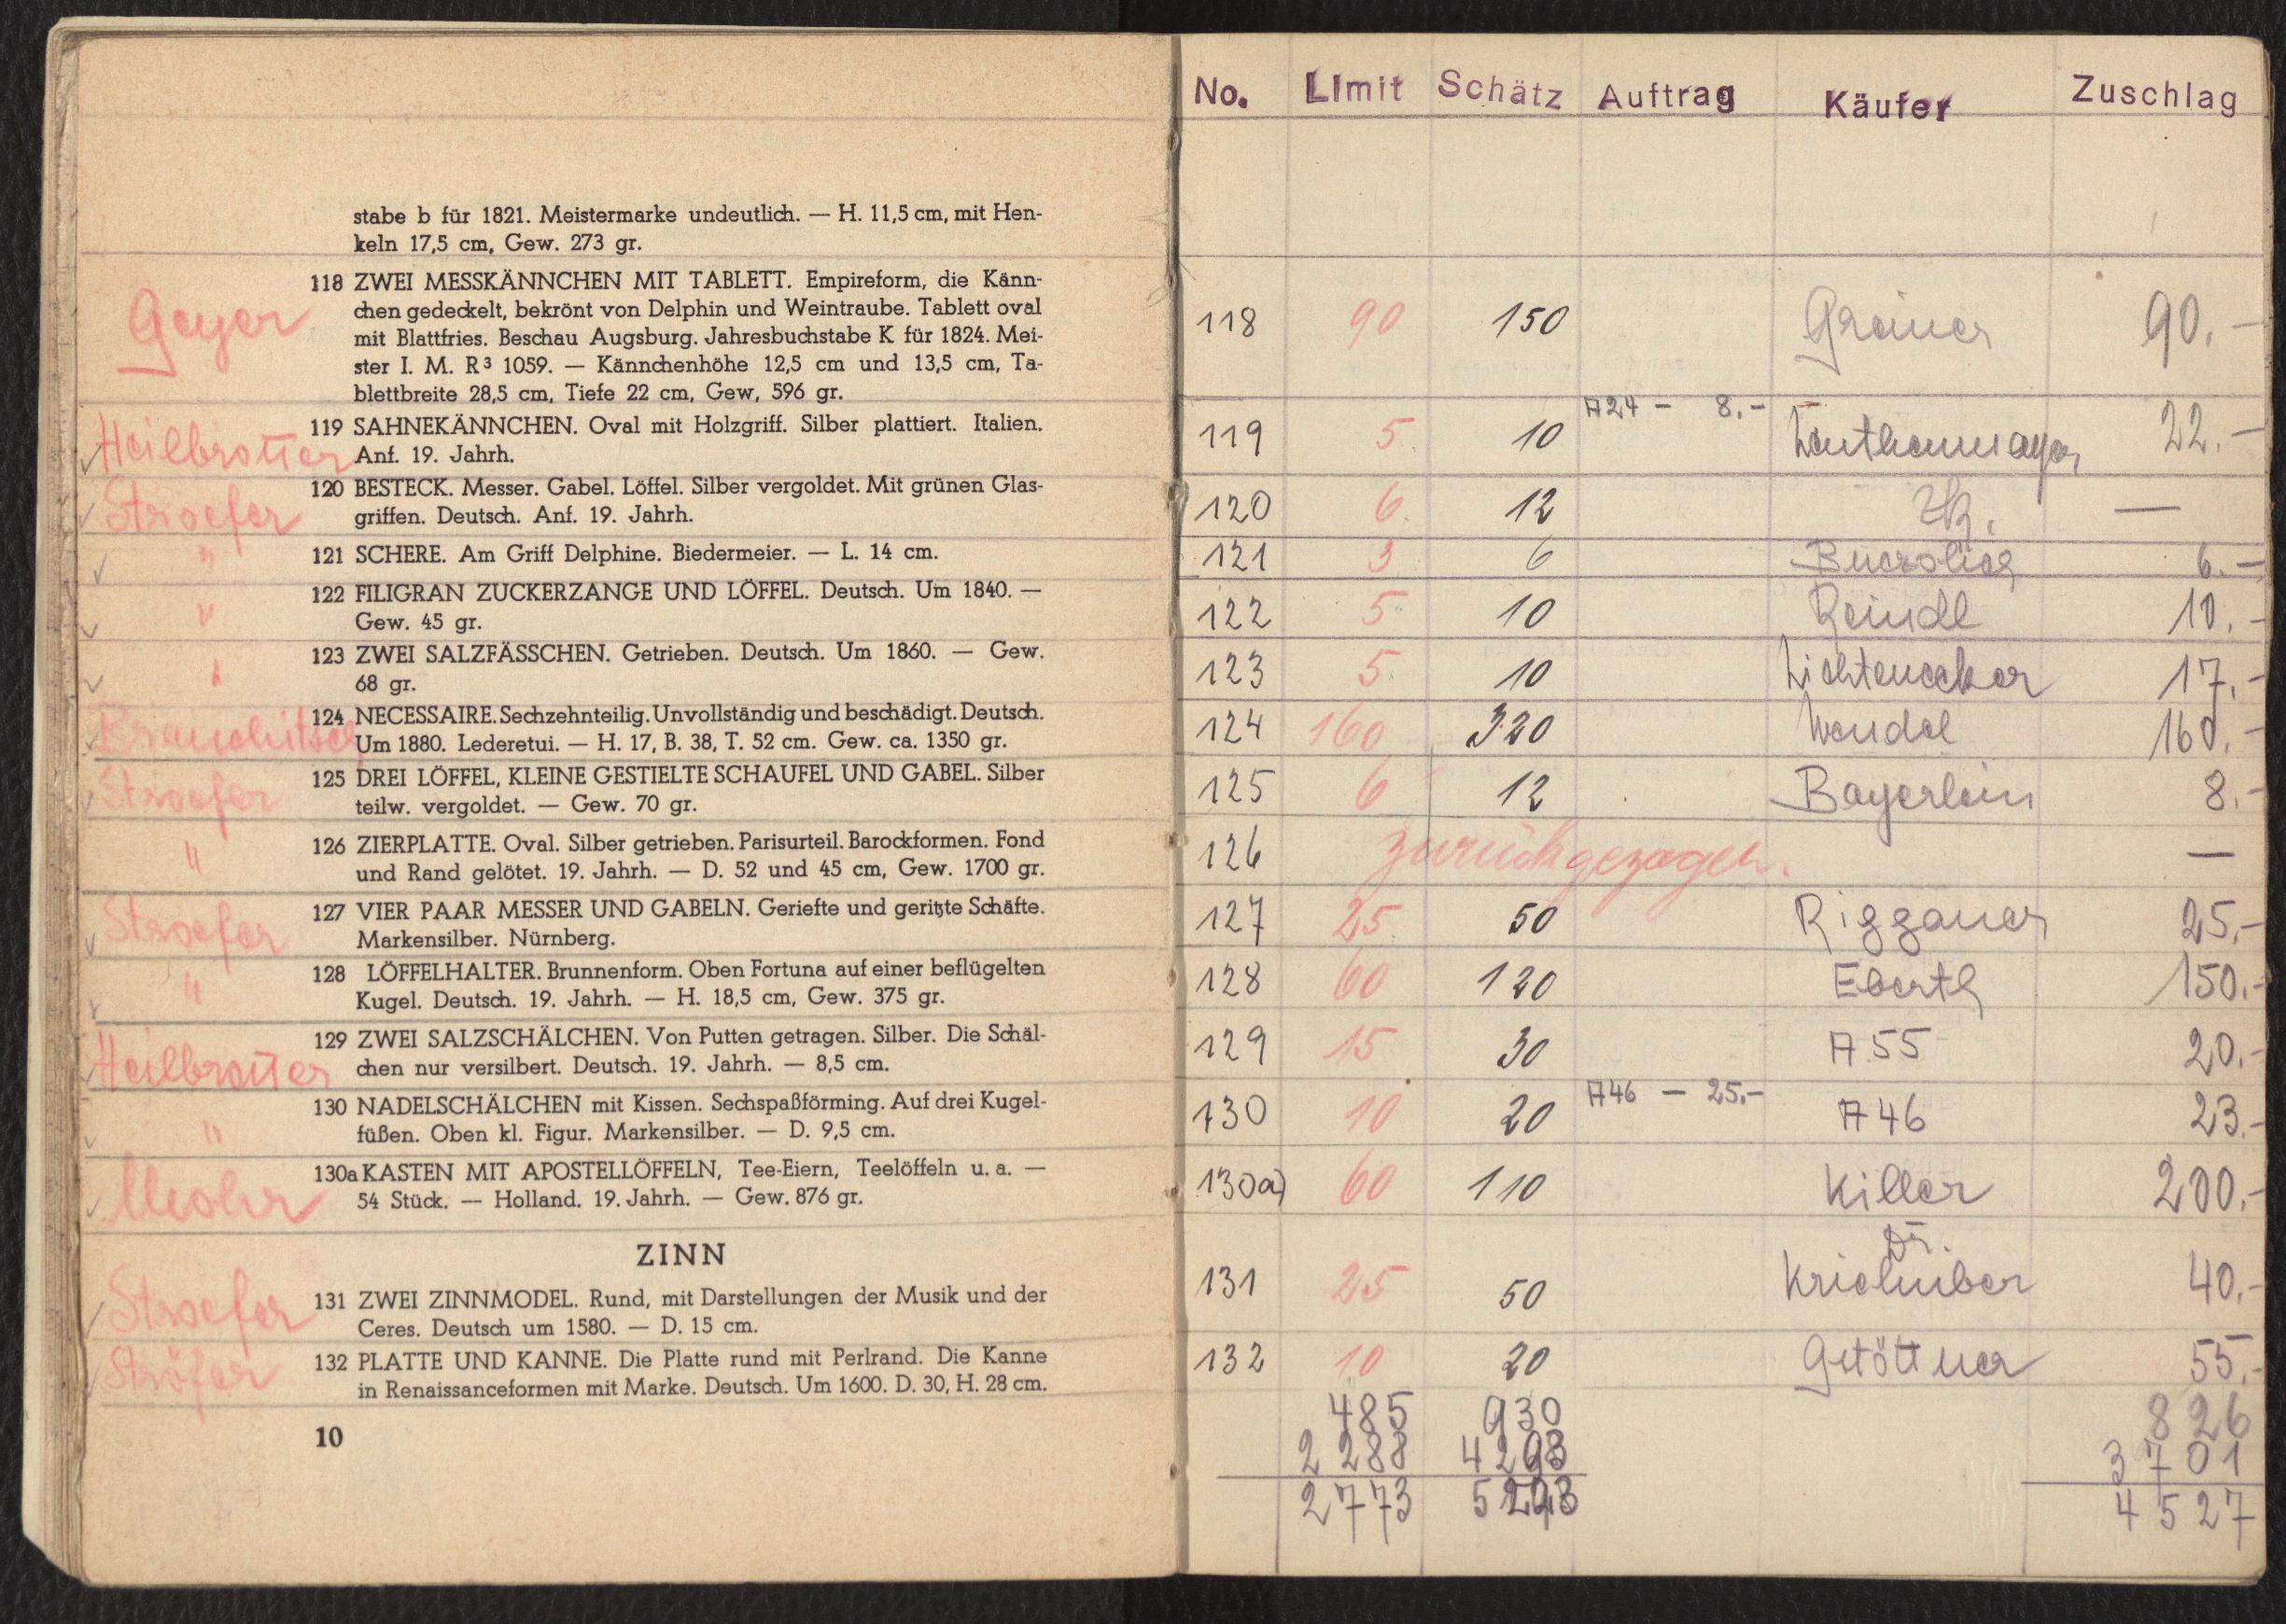 stabe b für 1821. Meistermarke undeutlich. — H. 11,5 cm, mit Hen-
keln 17,5 cm, Gew. 273 gr.
Geyer
118 ZWEI MESSKÄNNCHEN MIT TABLETT. Empireform, die Känn-
chen gedeckelt, bekrönt von Delphin und Weintraube. Tablett oval
mit Blattfries. Beschau Augsburg. Jahresbuchstabe K für 1824. Mei-
ster I. M. R³ 1059. — Kännchenhöhe 12,5 cm und 13,5 cm, Ta-
blettbreite 28,5 cm, Tiefe 22 cm, Gew, 596 gr.
119 SAHNEKÄNNCHEN. Oval mit Holzgriff. Silber plattiert. Italien.
Heilbronner Anf. 19. Jahrh.
120 BESTECK. Messer. Gabel. Löffel. Silber vergoldet. Mit grünen Glas-
Stroefer griffen. Deutsch. Anf. 19. Jahrh.
" 121 SCHERE. Am Griff Delphine. Biedermeier. — L. 14 cm.
" 122 FILIGRAN ZUCKERZANGE UND LÖFFEL. Deutsch. Um 1840. —
Gew. 45 gr.
" 123 ZWEI SALZFÄSSCHEN. Getrieben. Deutsch. Um 1860. — Gew.
68 gr.
124 NECESSAIRE. Sechzehnteilig. Unvollständig und beschädigt. Deutsch.
Brauchitsch Um 1880. Lederetui. — H. 17, B. 38, T. 52 cm. Gew. ca. 1350 gr.
125 DREI LÖFFEL, KLEINE GESTIELTE SCHAUFEL UND GABEL. Silber
Stroefer teilw. vergoldet. — Gew. 70 gr.
" 126 ZIERPLATTE. Oval. Silber getrieben. Parisurteil. Barockformen. Fond
und Rand gelötet. 19. Jahrh. — D. 52 und 45 cm, Gew. 1700 gr.
127 VIER PAAR MESSER UND GABELN. Geriefte und geritzte Schäfte.
Stroefer Markensilber. Nürnberg.
" 128 LÖFFELHALTER. Brunnenform. Oben Fortuna auf einer beflügelten
Kugel. Deutsch. 19. Jahrh. — H. 18,5 cm, Gew. 375 gr.
129 ZWEI SALZSCHÄLCHEN. Von Putten getragen. Silber. Die Schäl-
Heilbronner chen nur versilbert. Deutsch. 19. Jahrh. — 8,5 cm.
130 NADELSCHÄLCHEN mit Kissen. Sechspaßförming. Auf drei Kugel-
" füßen. Oben kl. Figur. Markensilber. — D. 9,5 cm.
130a KASTEN MIT APOSTELLÖFFELN, Tee-Eiern, Teelöffeln u. a. —
Mohr 54 Stück. — Holland. 19. Jahrh. — Gew. 876 gr.
ZINN
Stroefer 131 ZWEI ZINNMODEL. Rund, mit Darstellungen der Musik und der
Ceres. Deutsch um 1580. — D. 15 cm.
Ströfer 132 PLATTE UND KANNE. Die Platte rund mit Perlrand. Die Kanne
in Renaissanceformen mit Marke. Deutsch. Um 1600. D. 30, H. 28 cm.
10
No. Limit Schätz Auftrag Käufer Zuschlag
118 90 150 Greiner 90.-
119 5. 10 A24 - 8.- 22.-
120 6. 12 —
121 3 6 6.-
122 5 10 Reindl 10.-
123 5. 10 Lichtenecker 17.-
124 160 320 Wendel 160.-
125 6 12 Bayerlein 8.-
126 zurückgezogen. —
127 25. 50 Riggauer 25.-
128 60 120 Ebertz 150.-
129 15 30 A 55 20.-
130 10 20 A46 - 25.- A 46 23.-
130a) 60 110 Killer 200.-
Dr.
131 25 50 Kriehuber 40.-
132 10 20 Gstöttner 55.-
485 930 826
2288 4293 3701
2773 5223 4527